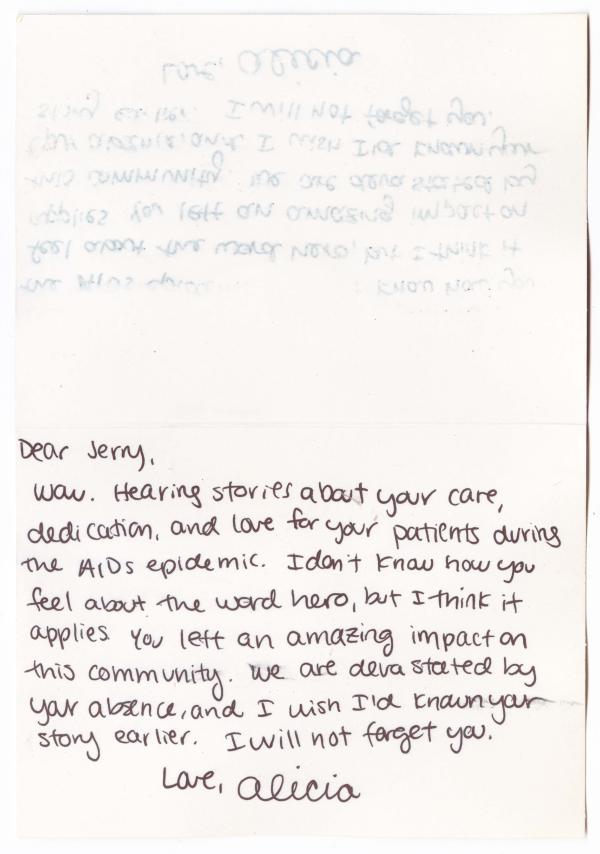 Dear Jerry,
Wow. Hearing stories about your care,
dedication, and love for your patients during
the AIDs epidemic. I don't know how you
feel about the word hero, but I think it
applies. You left an amazing impact on
this community. We are devastated by
your absence, and I wish I'd known your
story earlier. I will not forget you.
Love, Alicia